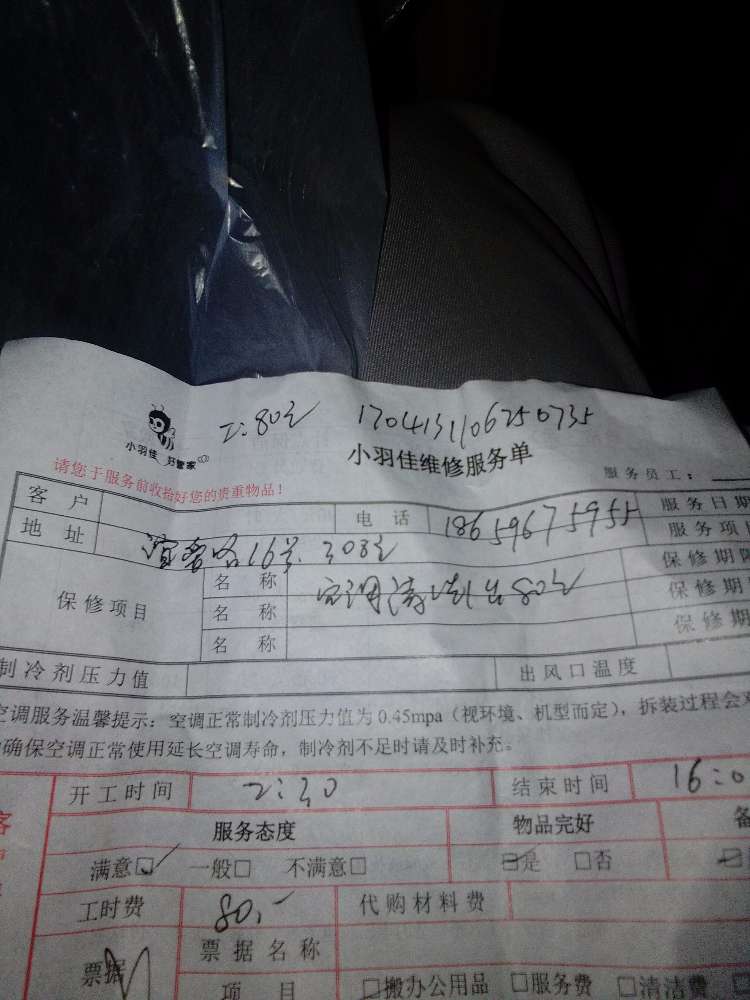 工:80元 1704131106250735
小羽佳 好管家
小羽佳维修服务单
请您于服务前收拾好您的贵重物品!
服务员工:
客 户 电 话 18659675955 服务日期
地 址 16号 303室 服务项
保修项目 名 称 空调清洗1台80元 保修期
名 称 保修期
名 称 保修期
制冷剂压力值 出风口温度
空调服务温馨提示:空调正常制冷剂压力值为 0.45mpa(视环境、机型而定),拆装过程会
确保空调正常使用延长空调寿命,制冷剂不足时请及时补充。
开工时间 2:30 结束时间 16:0
服务态度 物品完好
满意☑ 一般□ 不满意□ ☑是 □否
工时费 80.- 代购材料费
票据 票据名称
项 目 □搬办公用品 □服务费 □清洁费